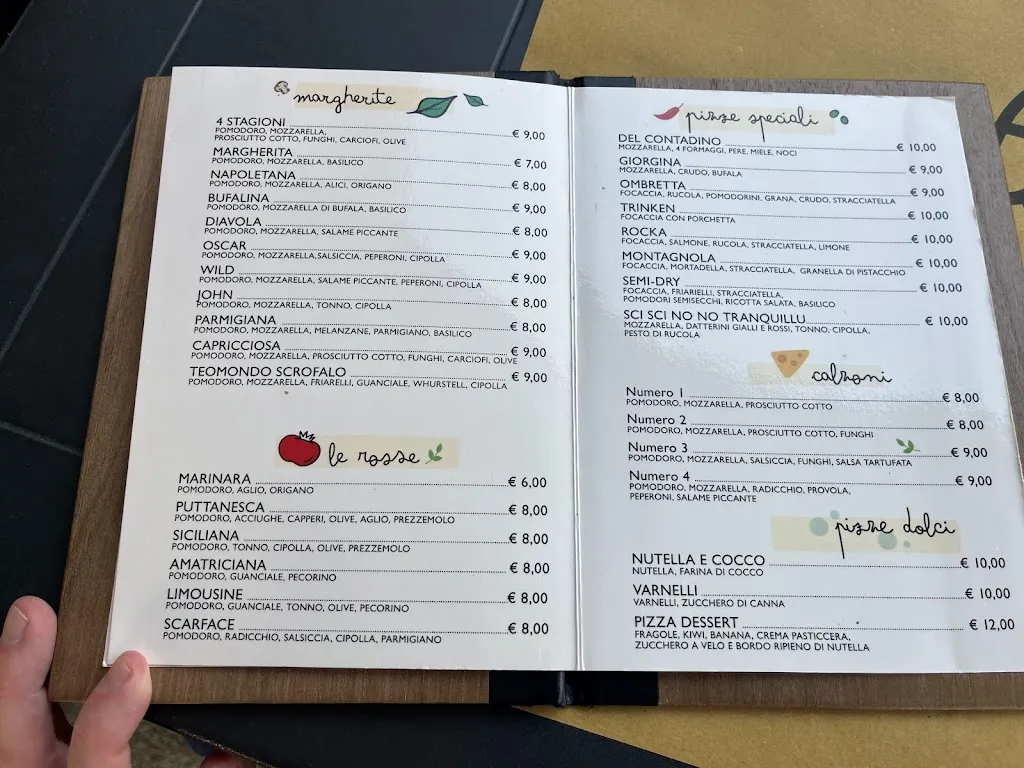 margherite
4 STAGIONI € 9,00
POMODORO, MOZZARELLA,
PROSCIUTTO COTTO, FUNGHI, CARCIOFI, OLIVE
MARGHERITA € 7,00
POMODORO, MOZZARELLA, BASILICO
NAPOLETANA € 8,00
POMODORO, MOZZARELLA, ALICI, ORIGANO
BUFALINA € 9,00
POMODORO, MOZZARELLA DI BUFALA, BASILICO
DIAVOLA € 8,00
POMODORO, MOZZARELLA, SALAME PICCANTE
OSCAR € 9,00
POMODORO, MOZZARELLA,SALSICCIA, PEPERONI, CIPOLLA
WILD € 9,00
POMODORO, MOZZARELLA, SALAME PICCANTE, PEPERONI, CIPOLLA
JOHN € 8,00
POMODORO, MOZZARELLA, TONNO, CIPOLLA
PARMIGIANA € 8,00
POMODORO, MOZZARELLA, MELANZANE, PARMIGIANO, BASILICO
CAPRICCIOSA € 9,00
POMODORO, MOZZARELLA, PROSCIUTTO COTTO, FUNGHI, CARCIOFI, OLIVE
TEOMONDO SCROFALO € 9,00
POMODORO, MOZZARELLA, FRIARELLI, GUANCIALE, WHURSTELL, CIPOLLA
le rosse
MARINARA € 6,00
POMODORO, AGLIO, ORIGANO
PUTTANESCA € 8,00
POMODORO, ACCIUGHE, CAPPERI, OLIVE, AGLIO, PREZZEMOLO
SICILIANA € 8,00
POMODORO, TONNO, CIPOLLA, OLIVE, PREZZEMOLO
AMATRICIANA € 8,00
POMODORO, GUANCIALE, PECORINO
LIMOUSINE € 8,00
POMODORO, GUANCIALE, TONNO, OLIVE, PECORINO
SCARFACE € 8,00
POMODORO, RADICCHIO, SALSICCIA, CIPOLLA, PARMIGIANO
pizze speciali
DEL CONTADINO € 10,00
MOZZARELLA, 4 FORMAGGI, PERE, MIELE, NOCI
GIORGINA € 9,00
MOZZARELLA, CRUDO, BUFALA
OMBRETTA € 9,00
FOCACCIA, RUCOLA, POMODORINI, GRANA, CRUDO, STRACCIATELLA
TRINKEN € 10,00
FOCACCIA CON PORCHETTA
ROCKA € 10,00
FOCACCIA, SALMONE, RUCOLA, STRACCIATELLA, LIMONE
MONTAGNOLA € 10,00
FOCACCIA, MORTADELLA, STRACCIATELLA, GRANELLA DI PISTACCHIO
SEMI-DRY € 10,00
FOCACCIA, FRIARIELLI, STRACCIATELLA,
POMODORI SEMISECCHI, RICOTTA SALATA, BASILICO
SCI SCI NO NO TRANQUILLU € 10,00
MOZZARELLA, DATTERINI GIALLI E ROSSI, TONNO, CIPOLLA,
PESTO DI RUCOLA
calzoni
Numero 1 € 8,00
POMODORO, MOZZARELLA, PROSCIUTTO COTTO
Numero 2 € 8,00
POMODORO, MOZZARELLA, PROSCIUTTO COTTO, FUNGHI
Numero 3 € 9,00
POMODORO, MOZZARELLA, SALSICCIA, FUNGHI, SALSA TARTUFATA
Numero 4 € 9,00
POMODORO, MOZZARELLA, RADICCHIO, PROVOLA,
PEPERONI, SALAME PICCANTE
pizze dolci
NUTELLA E COCCO € 10,00
NUTELLA, FARINA DI COCCO
VARNELLI € 10,00
VARNELLI, ZUCCHERO DI CANNA
PIZZA DESSERT € 12,00
FRAGOLE, KIWI, BANANA, CREMA PASTICCERA,
ZUCCHERO A VELO E BORDO RIPIENO DI NUTELLA